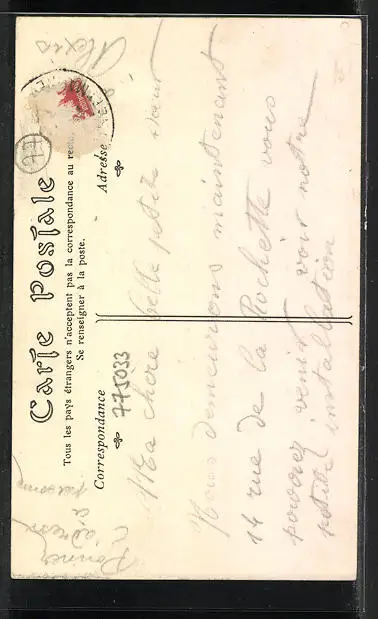 Carte Postale
Tous les pays étrangers n'acceptent pas la correspondance au recto.
Se renseigner à la poste.
Correspondance
Adresse
77
775033
Alexis
Donner
l'adresse
a
personne
Ma chère belle petite sœur
Nous demeurons maintenant
14 rue de la Rochette vous
pouvez venir voir notre
petite installation